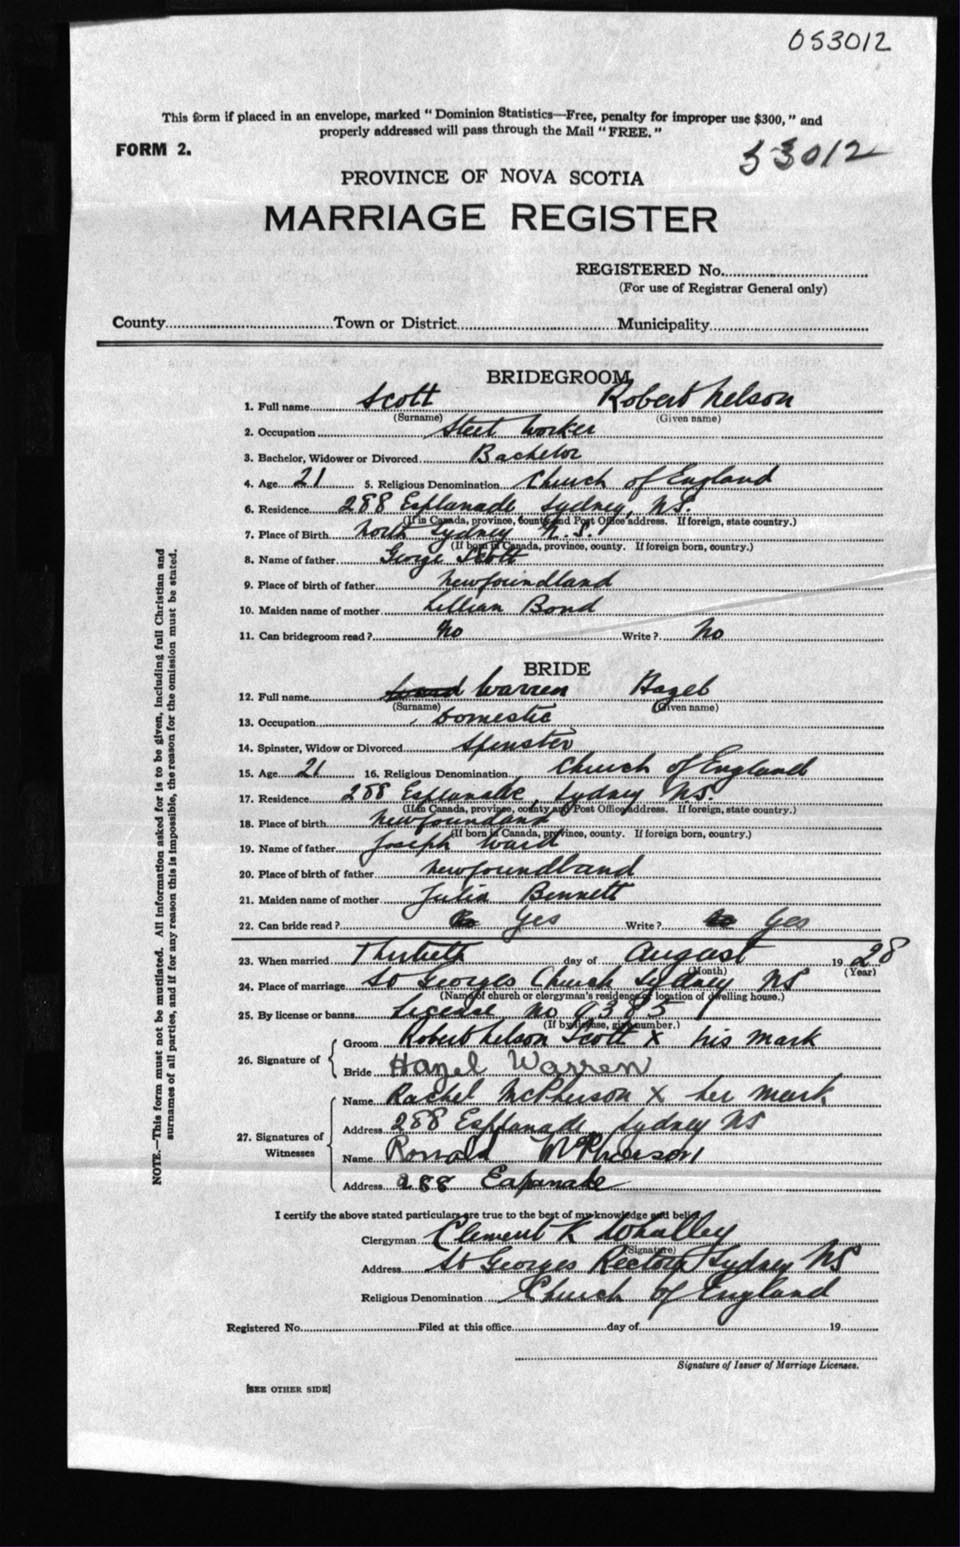 053012
This form if placed in an envelope, marked "Dominion Statistics—Free, penalty for improper use $300," and
properly addressed will pass through the Mail "FREE."
FORM 2.
53012
PROVINCE OF NOVA SCOTIA
MARRIAGE REGISTER
REGISTERED No.
(For use of Registrar General only)
County Town or District Municipality
BRIDEGROOM
1. Full name Scott Robert Nelson
(Surname) (Given name)
2. Occupation Steel Worker
3. Bachelor, Widower or Divorced Bachelor
4. Age 21 5. Religious Denomination Church of England
6. Residence 288 Esplanade Sydney, N.S.
(If in Canada, province, county and Post Office address. If foreign, state country.)
7. Place of Birth North Sydney N.S.
(If born in Canada, province, county. If foreign born, country.)
8. Name of father George Scott
9. Place of birth of father Newfoundland
10. Maiden name of mother Lillian Bond
11. Can bridegroom read? No Write? No
BRIDE
12. Full name Warren Hazel
(Surname) (Given name)
13. Occupation Domestic
14. Spinster, Widow or Divorced Spinster
15. Age 21 16. Religious Denomination Church of England
17. Residence 288 Esplanade, Sydney NS.
(If in Canada, province, county and Post Office address. If foreign, state country.)
18. Place of birth Newfoundland
(If born in Canada, province, county. If foreign born, country.)
19. Name of father Joseph Ward
20. Place of birth of father Newfoundland
21. Maiden name of mother Julia Bennett
22. Can bride read? Yes Write? Yes
23. When married Thirtieth day of August 1928
(Month) (Year)
24. Place of marriage St Georges Church Sydney NS
(Name of church or clergyman's residence or location of dwelling house.)
25. By license or banns License No 9385
(If by license, give number.)
26. Signature of
Groom Robert Nelson Scott X his mark
Bride Hazel Warren
27. Signatures of Witnesses
Name Rachel McPherson X her mark
Address 288 Esplanade Sydney NS
Name Ronald McPherson
Address 288 Esplanade
I certify the above stated particulars are true to the best of my knowledge and belief.
Clergyman Clement K Whalley
(Signature)
Address St Georges Rectory Sydney NS
Religious Denomination Church of England
Registered No. Filed at this office day of 19
Signature of Issuer of Marriage Licenses.
[SEE OTHER SIDE]
NOTE.—This form must not be mutilated. All information asked for is to be given, including full Christian and
surnames of all parties, and if for any reason this is impossible, the reason for the omission must be stated.